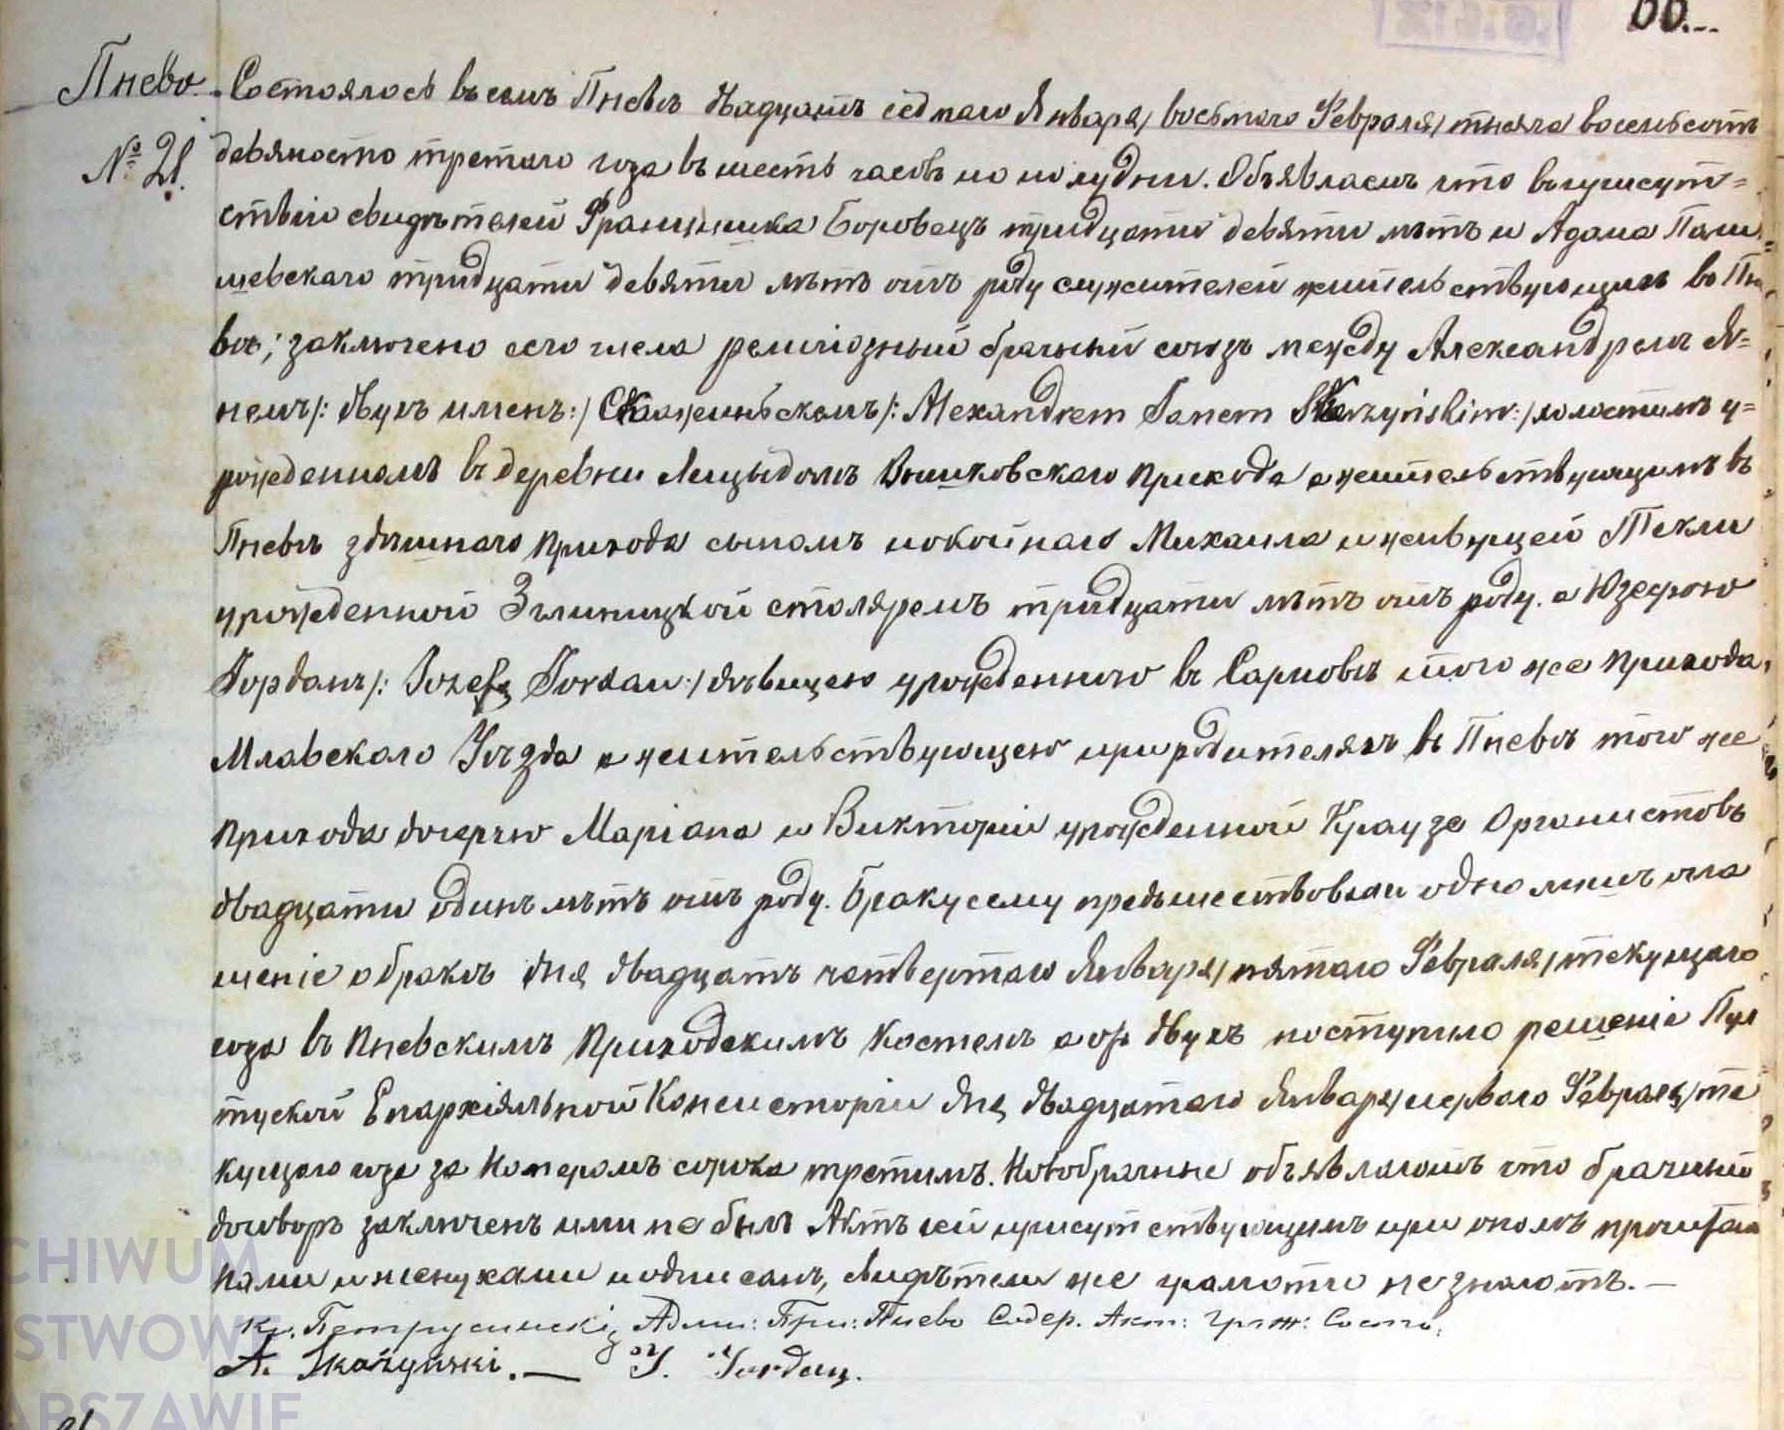 66...
Пнево
Состоялось въ селѣ Пневѣ двадцать седмаго Января / восьмаго Февраля / тысяча восемьсотъ
№ 21.
девяносто третаго года въ шесть часовъ по полудни. Объявляемъ что въ присут=
ствіи свидѣтелей Францишка Боровецъ тридцати девяти лѣтъ и Адама Паш
шевскаго тридцати девяти лѣтъ отъ роду служителей жительствующихъ въ Пне
вѣ; заключено сего числа религіозный брачный союзъ между Александромъ Я=
немъ /: двухъ именъ :/ Скажиньскомъ /: Alexandrem Janem Skarzyńskim :/ холостымъ у=
рожденномъ въ деревни приходѣ а жительствующимъ въ
Пневѣ здѣшнаго прихода сыномъ покойнаго Михаила и живущей Текли
урожденной Зглиницкой столяромъ тридцати лѣтъ отъ роду. а Юзефою
Іорданъ /: Jozefą Jordan :/ дѣвицею урожденною въ Сарновѣ того же прихода,
Млавскаго Уѣзда а жительствующею при родителяхъ въ Пневѣ того же
прихода дочерью Маріана и Викторіи урожденной Краузе Органистовъ
двадцати одинъ лѣтъ отъ роду. Браку сему предшествовали одно лишъ огла
шеніе о бракѣ дня двадцать четвертаго Января / пятаго Февраля / текущаго
года въ Пневскимъ Приходскимъ Костелѣ а отъ двухъ поступило решеніе Пул
туской Епархіяльной Консисторіи дня двадцатаго Января / перваго Февраля / те
кущаго года за Номеромъ сорока третимъ. Новобрачные объявляютъ что брачный
договоръ заключенъ ими не былъ Актъ сей присутствующимъ при ономъ прочитан
нами и женухами подписанъ, свидѣтели же грамоты не знаютъ. —
Кс. Петрусинскі Адми: При: Пнево Содер. Акт: Граж: Состо:
A. Skarzyński. — J. Jordan.
CHIWUM
STWOWE
ARSZAWIE